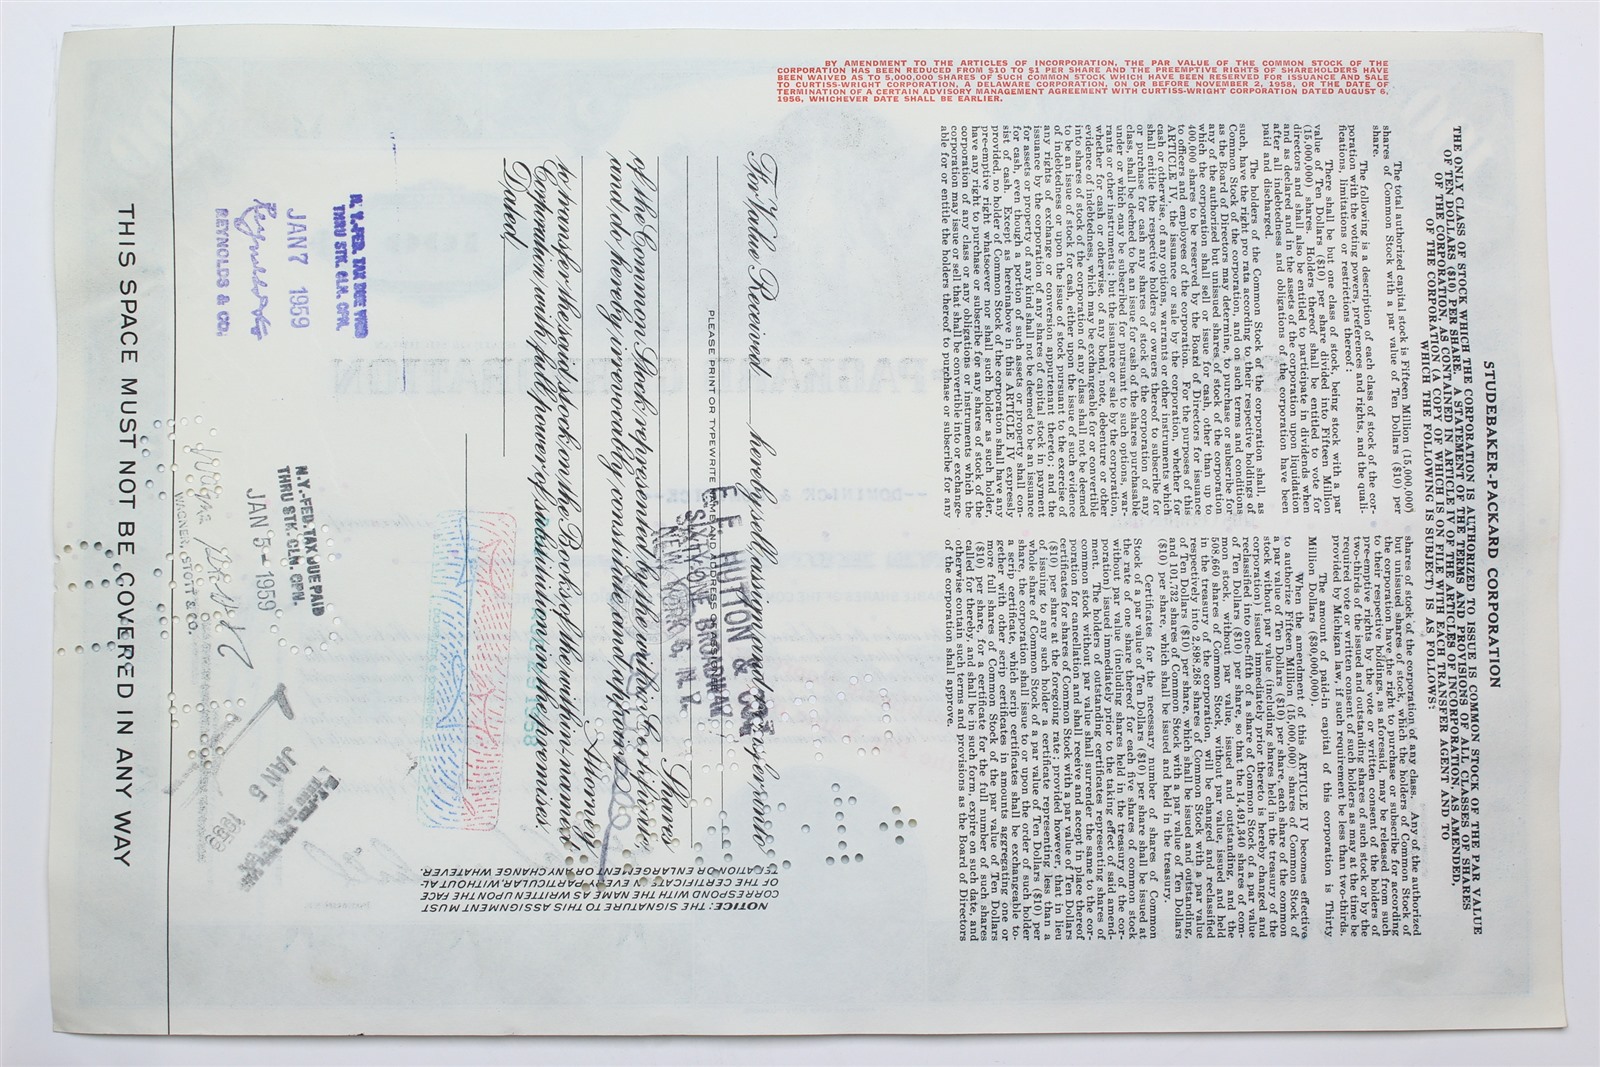 BY AMENDMENT TO THE ARTICLES OF INCORPORATION, THE PAR VALUE OF THE COMMON STOCK OF THE
CORPORATION HAS BEEN REDUCED FROM $10 TO $1 PER SHARE AND THE PREEMPTIVE RIGHTS OF SHAREHOLDERS HAVE
BEEN WAIVED AS TO 5,000,000 SHARES OF SUCH COMMON STOCK WHICH HAVE BEEN RESERVED FOR ISSUANCE AND SALE
TO CURTISS-WRIGHT CORPORATION, A DELAWARE CORPORATION, ON OR BEFORE NOVEMBER 2, 1958, OR THE DATE OF
TERMINATION OF A CERTAIN ADVISORY MANAGEMENT AGREEMENT WITH CURTISS-WRIGHT CORPORATION DATED AUGUST 6,
1956, WHICHEVER DATE SHALL BE EARLIER.
STUDEBAKER-PACKARD CORPORATION
THE ONLY CLASS OF STOCK WHICH THE CORPORATION IS AUTHORIZED TO ISSUE IS COMMON STOCK OF THE PAR VALUE
OF TEN DOLLARS ($10) PER SHARE. A STATEMENT OF THE TERMS AND PROVISIONS OF ALL CLASSES OF SHARES
OF THE CORPORATION, AS CONTAINED IN ARTICLE IV OF THE ARTICLES OF INCORPORATION, AS AMENDED,
OF THE CORPORATION (A COPY OF WHICH IS ON FILE WITH EACH TRANSFER AGENT AND TO
WHICH THE FOLLOWING IS SUBJECT) IS AS FOLLOWS:
The total authorized capital stock is Fifteen Million (15,000,000)
shares of Common Stock with a par value of Ten Dollars ($10) per
share.
The following is a description of each class of stock of the cor-
poration with the voting powers, preferences and rights, and the quali-
fications, limitations or restrictions thereof:
There shall be but one class of stock, being stock with a par
value of Ten Dollars ($10) per share divided into Fifteen Million
(15,000,000) shares. Holders thereof shall be entitled to vote for
directors and shall also be entitled to participate in dividends when
and as declared and in the assets of the corporation upon liquidation
after all indebtedness and obligations of the corporation have been
paid and discharged.
The holders of the Common Stock of the corporation shall, as
such, have the right pro rata according to their respective holdings of
Common Stock of the corporation, and on such terms and conditions
as the Board of Directors may determine, to purchase or subscribe for
any of the authorized but unissued shares of stock of the corporation
which the corporation shall sell or issue for cash, other than up to
400,000 shares to be reserved by the Board of Directors for issuance
to officers and employees of the corporation. For the purposes of this
ARTICLE IV, the issuance or sale by the corporation, whether for
cash or otherwise, of any option, warrants or other instruments which
shall entitle the respective holders or owners thereof to subscribe for
or purchase for cash any shares of stock of the corporation of any
class, shall be deemed to be an issue for cash of the shares purchasable
under or which may be subscribed for pursuant to such options, war-
rants or other instruments; but the issuance or sale by the corporation,
whether for cash or otherwise, of any bond, note, debenture or other
evidence of indebtedness, which may be exchangeable for or convertible
into shares of stock of the corporation of any class shall not be deemed
to be an issue of stock for cash, either upon the issue of such evidence
of indebtedness or upon the issue of stock pursuant to the exercise of
any rights of exchange or conversion appurtenant thereto; and the
issuance by the corporation of any shares of capital stock in payment
for assets or property of any kind shall not be deemed to be an issuance
for cash, even though a portion of such assets or property shall con-
sist of cash. Except as hereinabove in this ARTICLE IV expressly
provided, no holder of Common Stock of the corporation shall have any
pre-emptive right whatsoever nor shall such holder as such holder,
have any right to purchase or subscribe for any shares of stock of the
corporation of any class or any obligations or instruments which the
corporation may issue or sell that shall be convertible into or exchange-
able for or entitle the holders thereof to purchase or subscribe for any
shares of stock of the corporation of any class. Any of the authorized
but unissued shares of stock, which the holders of Common Stock of
the corporation have the right to purchase or subscribe for according
to their respective holdings, as aforesaid, may be released from such
pre-emptive rights by the vote or written consent of the holders of
two-thirds of the issued and outstanding shares of such stock or by the
required vote or written consent of such holders as may at the time be
provided by Michigan law, if such requirement be less than two-thirds.
The amount of paid-in capital of this corporation is Thirty
Million Dollars ($30,000,000).
When the amendment of this ARTICLE IV becomes effective
to authorize Fifteen Million (15,000,000) shares of Common Stock of
a par value of Ten Dollars ($10) per share, each share of the common
stock without par value (including shares held in the treasury of the
corporation) issued immediately prior thereto is hereby changed and
reclassified into one-fifth of a share of Common Stock of a par value
of Ten Dollars ($10) per share, so that the 14,491,340 shares of com-
mon stock, without par value, issued and outstanding, and the
508,660 shares of Common Stock, without par value, issued and held
in the treasury of the corporation, will be changed and reclassified
respectively into 2,898,268 shares of Common Stock with a par value
of Ten Dollars ($10) per share, which shall be issued and outstanding,
and 101,732 shares of Common Stock with a par value of Ten Dollars
($10) per share, which shall be issued and held in the treasury.
Certificates for the necessary number of shares of Common
Stock of a par value of Ten Dollars ($10) per share shall be issued at
the rate of one share thereof for each five shares of common stock
without par value (including shares held in the treasury of the cor-
poration) issued immediately prior to the taking effect of said amend-
ment. The holders of outstanding certificates representing shares of
common stock without par value shall surrender the same to the cor-
poration for cancellation and shall receive and accept in place thereof
certificates for shares of Common Stock with a par value of Ten Dollars
($10) per share at the foregoing rate; provided however, that in lieu
of issuing to any such holder a certificate representing less than a
whole share of Common Stock of a par value of Ten Dollars ($10) per
share, the corporation shall issue to or upon the order of such holder
a scrip certificate, which scrip certificates shall be exchangeable to-
gether with other scrip certificates in amounts aggregating one or
more full shares of Common Stock of the par value of Ten Dollars
($10) per share, for a certificate for the full number of such shares
called for thereby, and shall be in such form, expire on such date, and
otherwise contain such terms and provisions as the Board of Directors
of the corporation shall approve.
For Value Received hereby sell, assign and transfer unto
E. F. HUTTON & CO.
SIXTY-ONE BROADWAY
NEW YORK 6, N. Y.
PLEASE PRINT OR TYPEWRITE NAME AND ADDRESS OF ASSIGNEE
Shares
of the Common Stock represented by the within Certificate,
and do hereby irrevocably constitute and appoint
Attorney
to transfer the said stock on the Books of the within-named
Corporation, with full power of substitution in the premises.
Dated,
NOTICE: THE SIGNATURE TO THIS ASSIGNMENT MUST
CORRESPOND WITH THE NAME AS WRITTEN UPON THE FACE
OF THE CERTIFICATE IN EVERY PARTICULAR WITHOUT AL-
TERATION OR ENLARGEMENT OR ANY CHANGE WHATEVER.
N. Y. FED. TAX DUE PAID
THRU STK. CLR. CPN.
JAN 7 1959
REYNOLDS & CO.
N.Y.-FED. TAX DUE PAID
THRU STK. CLM. CPN.
JAN 5 - 1959
WAGNER, STOTT & CO.
JAN 5 1959
THIS SPACE MUST NOT BE COVERED IN ANY WAY